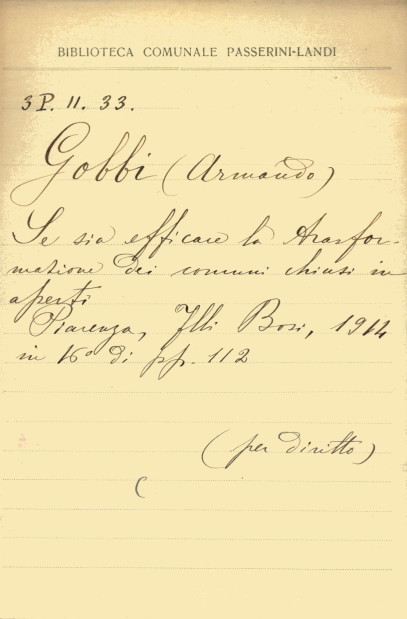 BIBLIOTECA COMUNALE PASSERINI-LANDI
3P. 11. 33.
Gobbi (Armando)
Se sia efficace la trasfor-
mazione dei comuni chiusi in
aperti
Piacenza, Flli Bosi, 1914
in 16° di pp. 112
(per diritto)
(